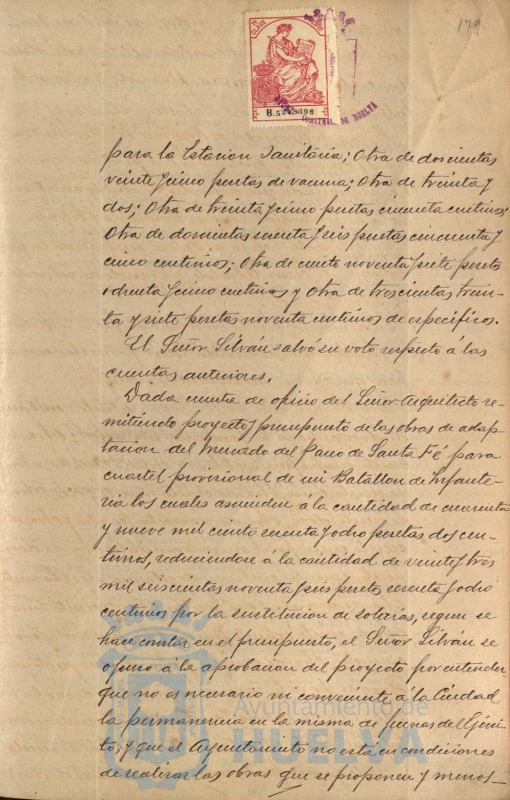 179
CLASE
B.5243396
CONSTNAL. DE HUELVA
para la Estacion Sanitaria; Otra de doscientas
veinte y cinco pesetas de vacuna; Otra de treinta y
dos; Otra de treinta y cinco pesetas cincuenta centimos;
Otra de doscientas sesenta y seis pesetas cincuenta y
cinco centimos; Otra de ciento noventa y siete pesetas
ochenta y cinco centimos y Otra de trescientas trein-
ta y siete pesetas noventa centimos de especificos.
El Señor Silván salvó su voto respecto á las
cuentas anteriores.
Dada cuenta de oficio del Señor Arquitecto re-
mitiendo proyecto y presupuesto de las obras de adap-
tacion del Mercado del Paseo de Santa Fé para
cuartel provisional de un Batallon de Infante-
ria los cuales ascienden á la cantidad de cuarenta
y nueve mil ciento sesenta y ocho pesetas dos cen-
timos, reduciendose á la cantidad de veinte y tres
mil seiscientas noventa y seis pesetas sesenta y ocho
centimos por la sustitucion de solerias, segun se
hace constar en el presupuesto, el Señor Silván se
opuso á la aprobacion del proyecto por entender
que no es necesario ni conveniente á la Ciudad
la permanencia en la misma de fuerzas del Ejérci-
to, y que el Ayuntamiento no está en condiciones
de realizar las obras que se proponen y menos-
Ayuntamiento de
HUELVA